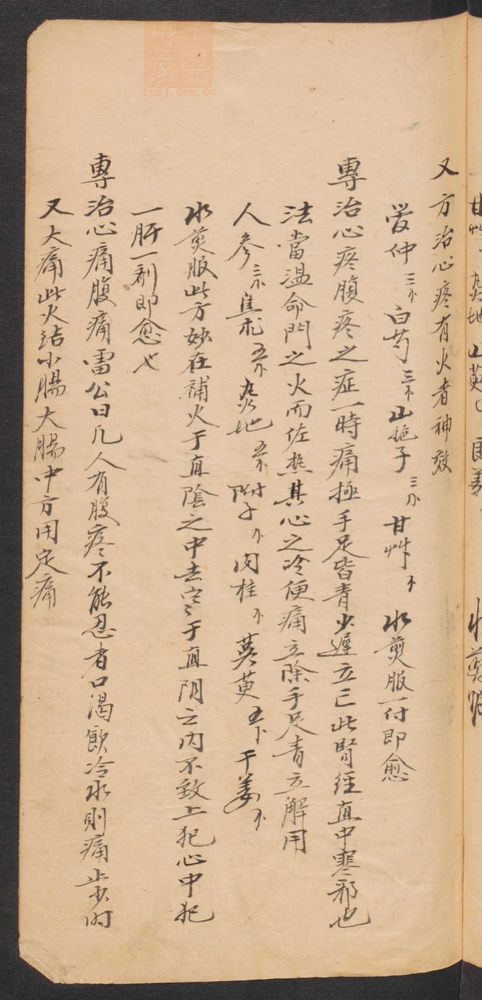 又方治心疼有火者神效
贯仲三卜白芍三卜山梔子三卜甘艸卜水煎服一付即愈
專治心疼腹疼之症一時痛極手足皆青少遲立亡此腎経直中寒邪也
法當温命門之火而佐熱其心之冷使痛立除手足青立解用
人參三卜焦朮五卜熟地五卜附子卜肉桂卜萸五卜干姜卜
水煎服此方妙在補火于真陰之中去寒于直阴之内不致上犯心中犯
一肝一剂即愈也
專治心痛腹痛雷公曰凡人有腹疼不能忍者口渴飲冷水則痛止少时
又大痛此火结小腸大腸中方用定痛